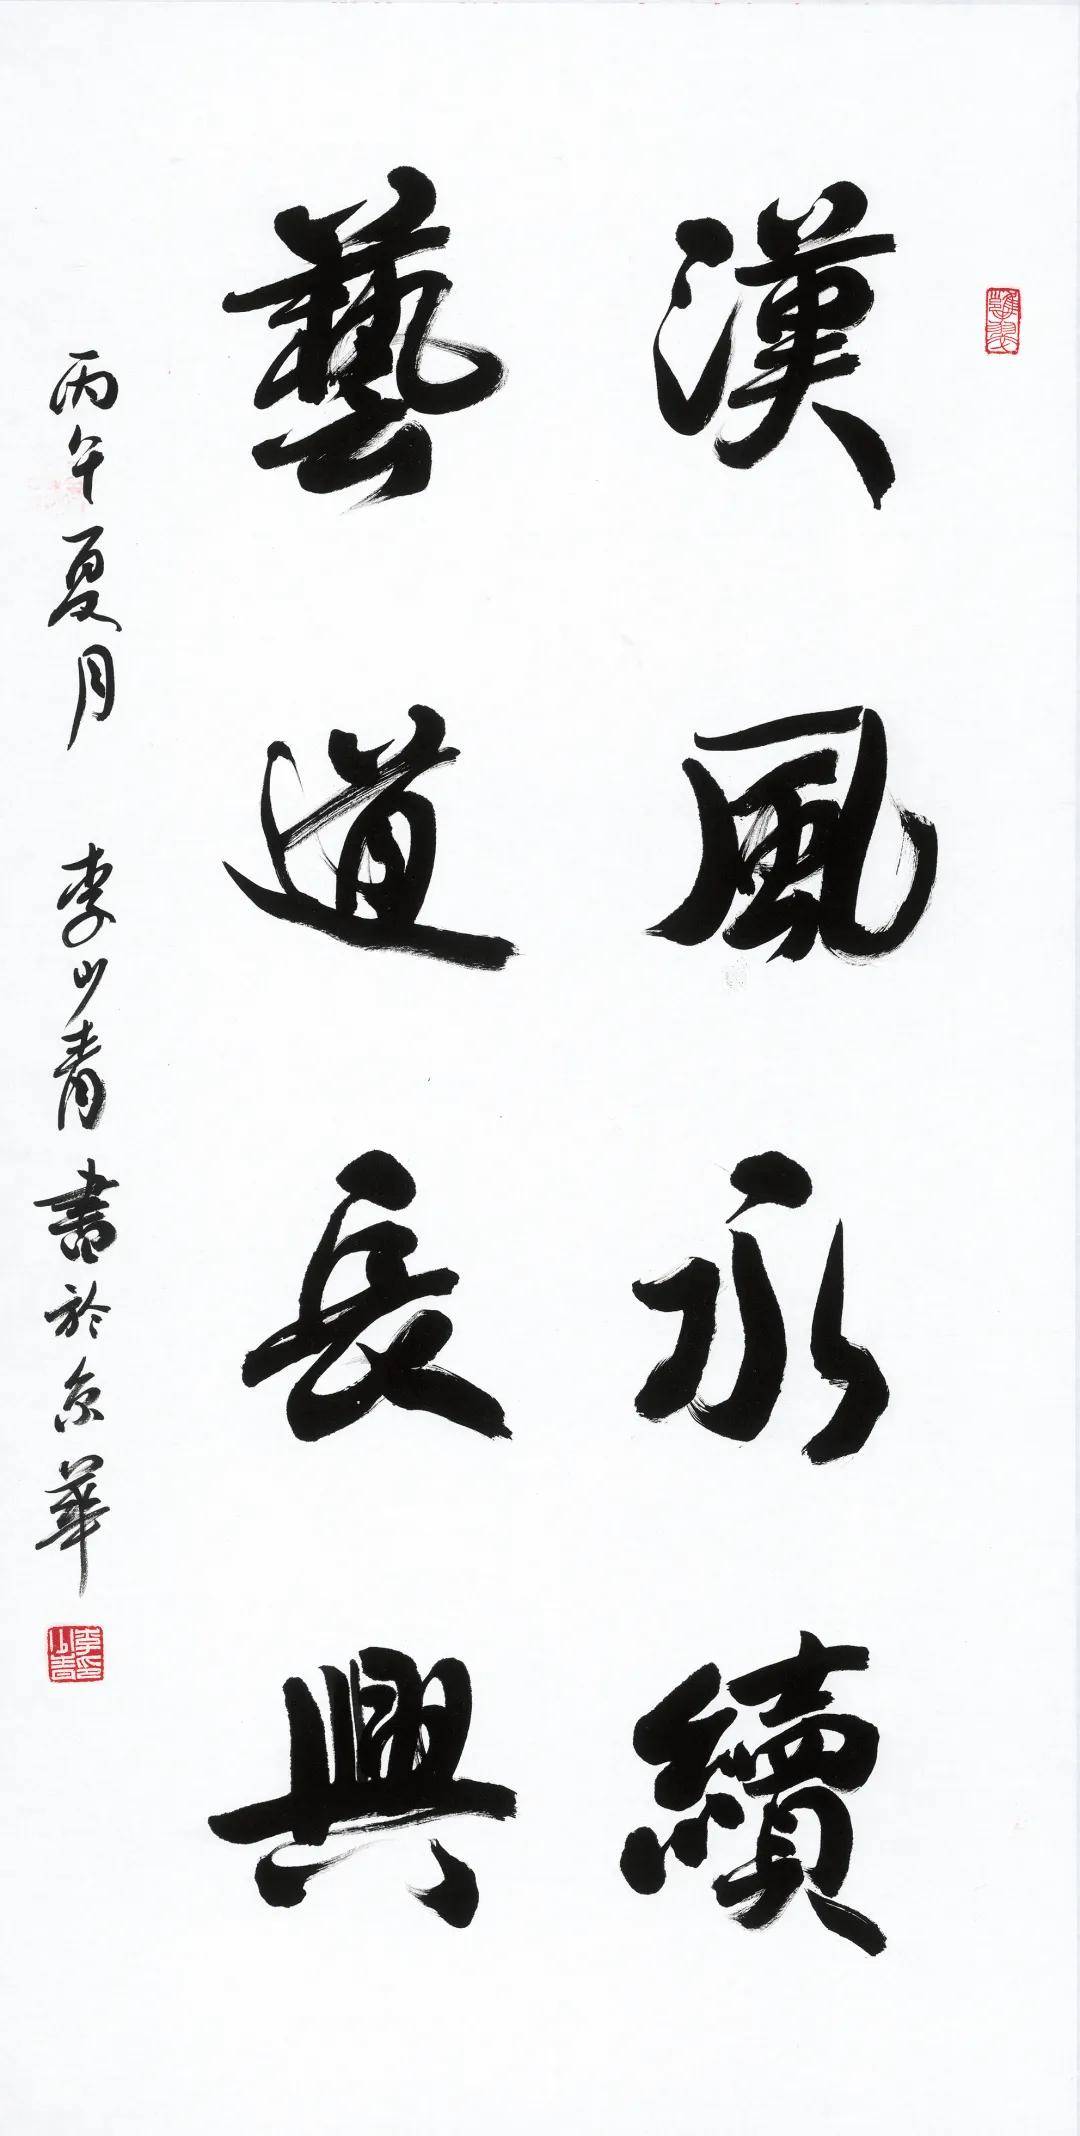 漢風永續
藝道長興
丙午夏月 李少青書於京華